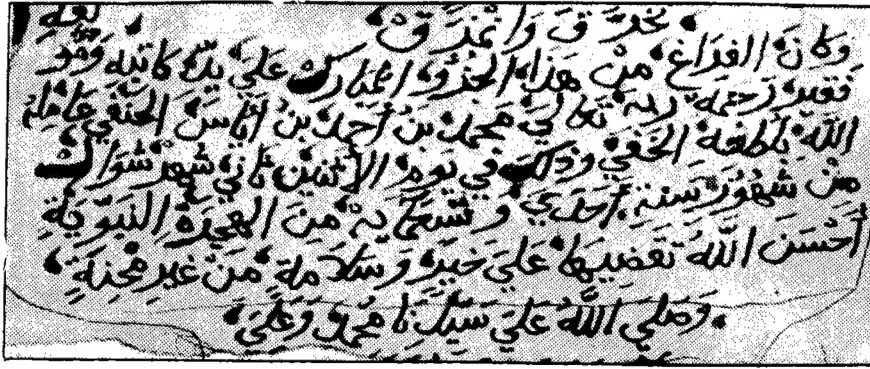 تخرق وانمزق
وكان الفراغ من هذا الجزو المبارك على يد كاتبه وهو
فقير رحمة ربه تعالى محمد بن أحمد بن أناس الحنفي عامله
الله بلطفه الخفي وذلك في يوم الاثنين ثاني شهر شوال
من شهور سنة أحدي وتسعماية من الهجرة النبوية
أحسن الله تقضيها على خير وسلامة من غير محنة
وصلي الله على سيدنا محمد وعلى